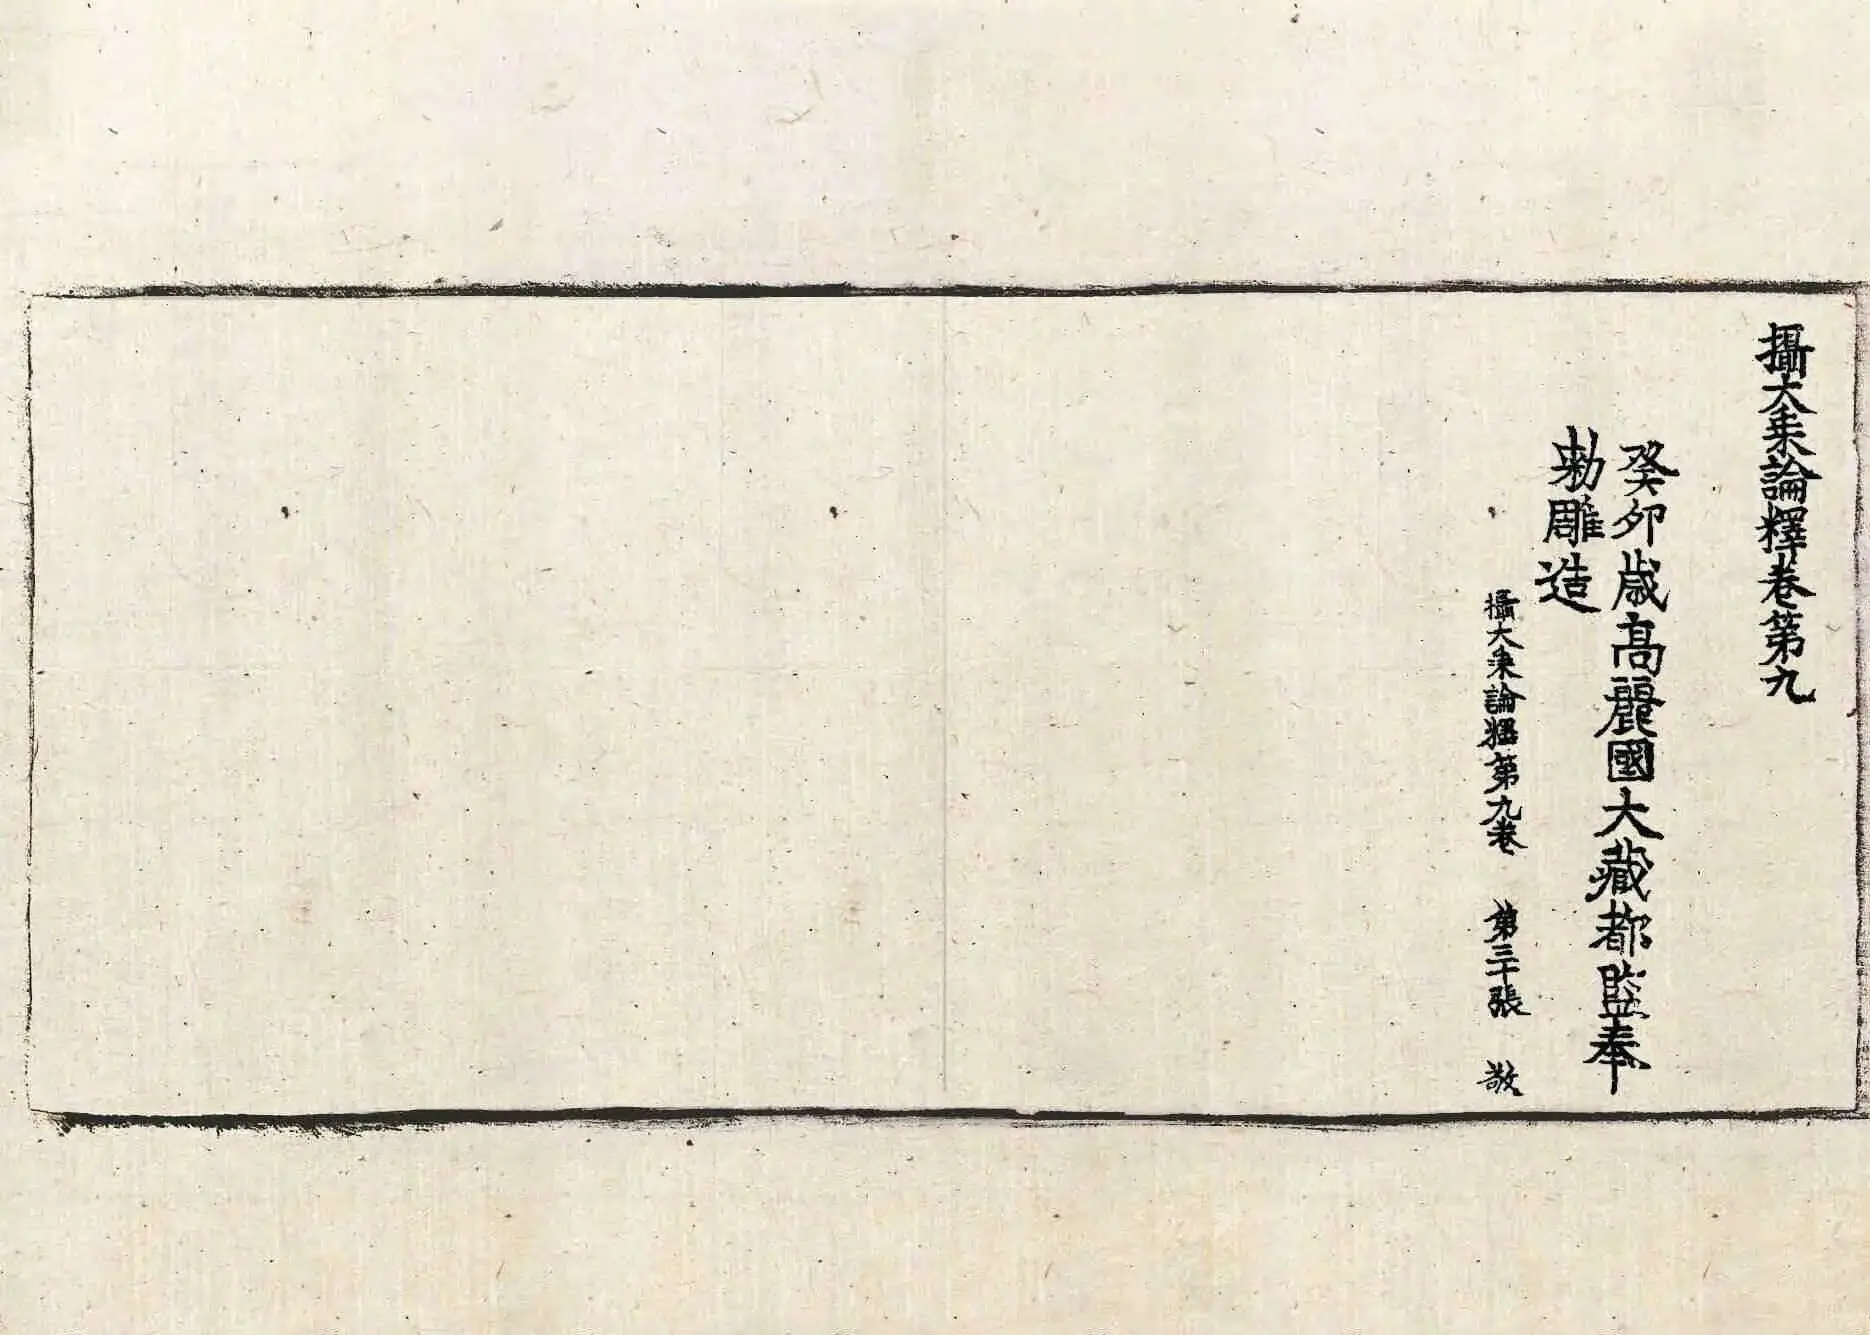 攝大乗論釋卷第九
癸卯歲高麗國大藏都監奉
勅雕造
攝大乗論釋第九卷 第三十張 敬